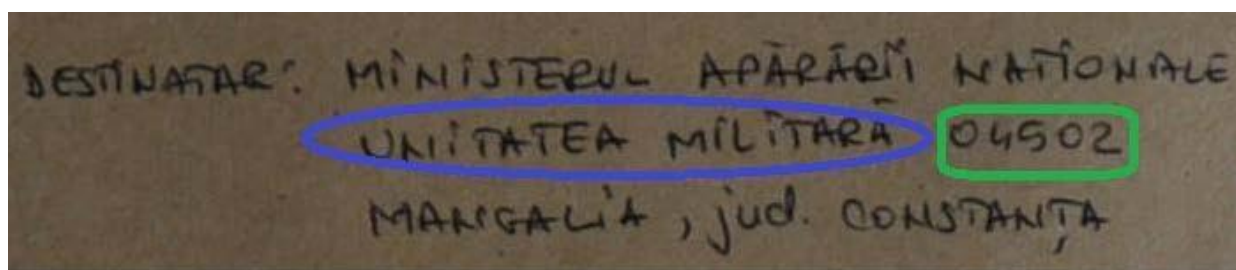 DESTINATAR: MINISTERUL APĂRĂRII NATIONALE
UNITATEA MILITARĂ 04502
MANGALIA, jud. CONSTANȚA